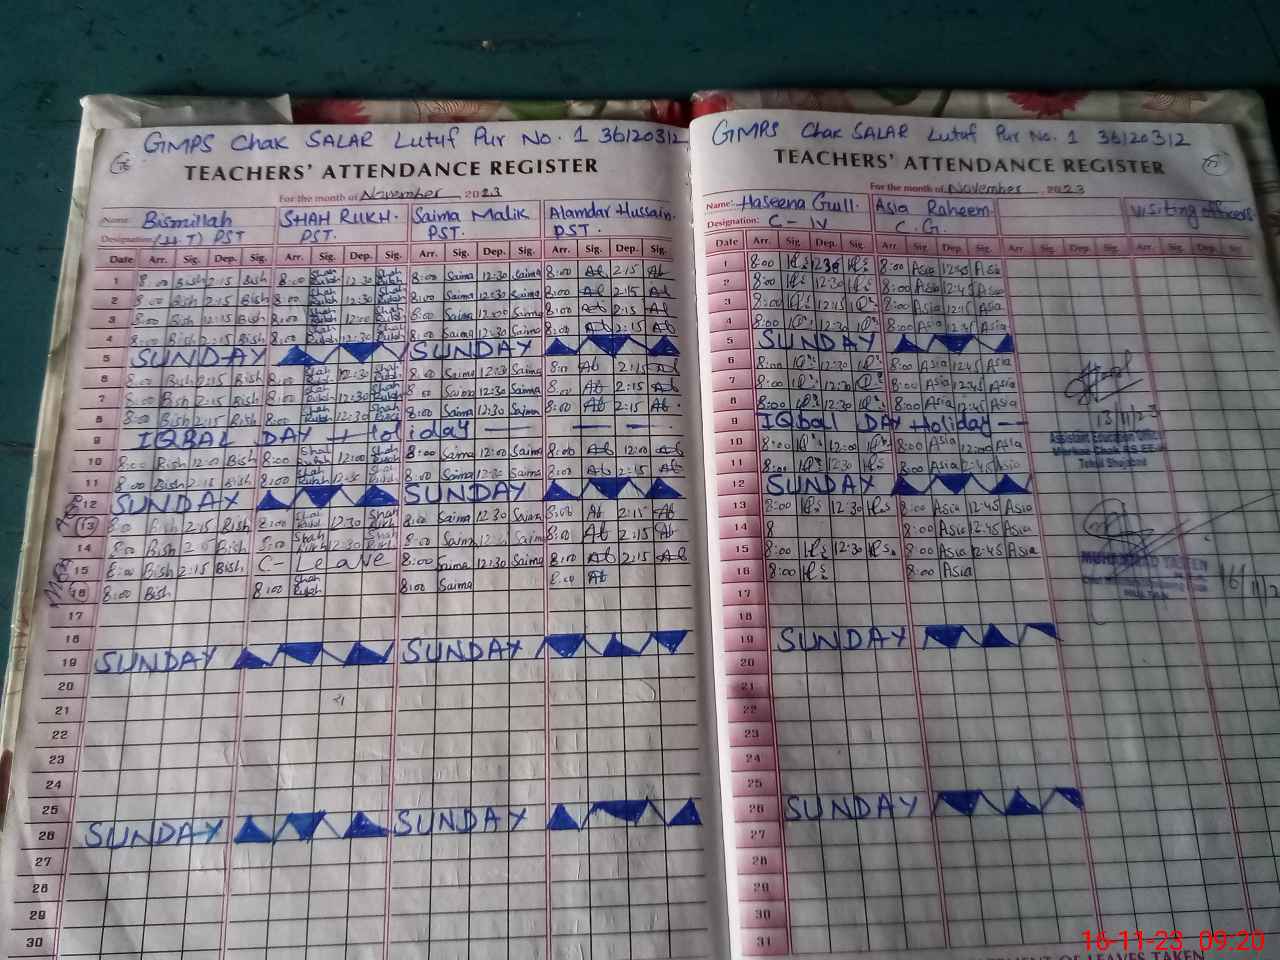 GMPS Chak SALAR Lutuf Pur No. 1 36120312
TEACHERS' ATTENDANCE REGISTER
For the month of November 2023
Name: Bismillah SHAH RUKH. Saima Malik Alamdar Hussain.
Designation (H.T) PST PST. PST. PST.
Date Arr. Sig. Dep. Sig. Arr. Sig. Dep. Sig. Arr. Sig. Dep. Sig. Arr. Sig. Dep. Sig.
1 8:00 Bish 2:15 Bish 8:00 Shah Rukh 12:30 Shah Rukh 8:00 Saima 12:30 Saima 8:00 2:15
2 8:00 Bish 2:15 Bish 8:00 Shah Rukh 12:30 Shah Rukh 8:00 Saima 12:30 Saima 8:00 2:15
3 8:00 Bish 12:15 Bish 8:00 Shah Rukh 12:00 Shah Rukh 8:00 Saima 12:00 Saima 8:00
4 8:00 Bish 2:15 Bish 8:00 Shah Rukh 12:30 Shah Rukh 8:00 Saima 12:30 Saima 8:00 2:15
5 SUNDAY SUNDAY
6 8:00 Bish 2:15 Bish 8:00 Shah Rukh 12:30 Shah Rukh 8:00 Saima 12:30 Saima 8:00 Ab 2:15 Ab
7 8:00 Bish 2:15 Bish 8:00 Shah Rukh 12:30 Shah Rukh 8:00 Saima 12:30 Saima 8:00 Ab 2:15 Ab
8 8:00 Bish 2:15 Bish 8:00 Shah Rukh 12:30 Shah Rukh 8:00 Saima 12:30 Saima 8:00 Ab 2:15 Ab
9 IQBAL DAY Holiday
10 8:00 Bish 12:00 Bish 8:00 Shah Rukh 12:00 Shah Rukh 8:00 Saima 12:00 Saima 8:00 Ab 12:00 Ab
11 8:00 Bish 2:15 Bish 8:00 Shah Rukh 12:30 Shah Rukh 8:00 Saima 12:30 Saima 8:00 Ab 2:15 Ab
12 SUNDAY SUNDAY
13 8:00 Bish 2:15 Bish 8:00 Shah Rukh 12:30 Shah Rukh 8:00 Saima 12:30 Saima 8:00 Ab 2:15 Ab
14 8:00 Bish Bish 8:00 Shah Rukh 12:30 Shah Rukh 8:00 Saima 12:30 Saima 8:00 Ab 2:15 Ab
15 8:00 Bish 2:15 Bish C- LeaVe 8:00 Saima 12:30 Saima 8:00 Ab 2:15 Ab
16 8:00 Bish 8:00 Shah Rukh 8:00 Saima 8:00 Ab
17
18
19 SUNDAY SUNDAY
20
21
22
23
24
25
26 SUNDAY SUNDAY
27
28
29
30
GMPS Chak SALAR Lutuf Pur No. 1 36120312
TEACHERS' ATTENDANCE REGISTER
For the month of November 2023
Name: Haseena Gull. Asia Raheem Visiting officers
Designation: C-IV C.G.
Date Arr. Sig. Dep. Sig. Arr. Sig. Dep. Sig. Arr. Sig. Dep. Sig. Arr. Sig. Dep. Sig.
1 8:00 12:30 8:00 Asia 12:45 Asia
2 8:00 12:30 8:00 Asia 12:45 Asia
3 8:00 8:00 Asia Asia
4 8:00 12:30 8:00 Asia 12:45 Asia
5 SUNDAY
6 8:00 12:30 8:00 Asia 12:45 Asia
7 8:00 12:30 8:00 Asia 12:45 Asia
8 8:00 12:30 8:00 Asia 12:45 Asia
9 IQball DAY Holiday
10 8:00 12:00 8:00 Asia 12:00 Asia
11 8:00 12:30 8:00 Asia 12:45 Asia
12 SUNDAY
13 8:00 12:30 8:00 Asia 12:45 Asia
14 8 8:00 Asia 12:45 Asia
15 8:00 12:30 8:00 Asia 12:45 Asia
16 8:00 8:00 Asia
17
18
19 SUNDAY
20
21
22
23
24
25
26 SUNDAY
27
28
29
30
31
13/11/23
Assistant Education Officer
16/11/2
16-11-23 09:20
OF LEAVES TAKEN